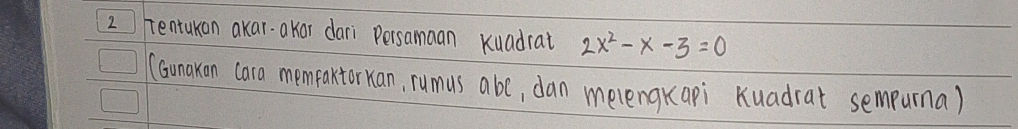 2 Tentukan akar-akar dari Persamaan Kuadrat 2x² - x - 3 = 0
(Gunakan Cara memfaktorkan, rumus abc, dan melengkapi Kuadrat sempurna)